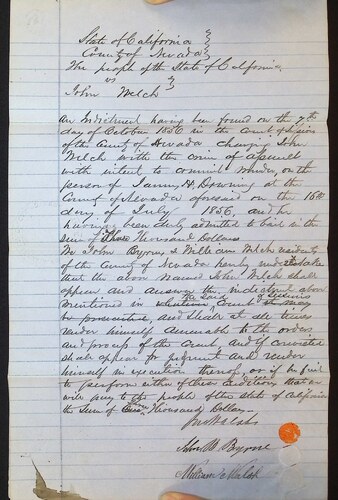 State of California }
County of Nevada }
The people of the State of California
vs }
John Welch }
An Indictment having been found on the 7th
day of October 1856 in the Court of Sessions
of the County of Nevada charging John
Welch with the crime of assault
with intent to commit Murder, on the
person of H. Downing at the
County of Nevada aforesaid on the 16th
day of July 1856, and he
having been duly admitted to bail in the
sum of Three Thousand Dollars
We John Byrne & William Welch residents
of the County of Nevada hereby undertake
that the above named John Welch shall
appear and answer the indictment above
mentioned in whatever the said Court of Sessions it may
be prosecuted, and shall at all times
render himself amenable to the orders
and process of the Court, and if convicted
shall appear for judgment and render
himself in execution thereof, or if he fail
to perform either of these conditions that we
will pay to the people of the state of California
the Sum of Three Thousand Dollars.
John M Byrne
William